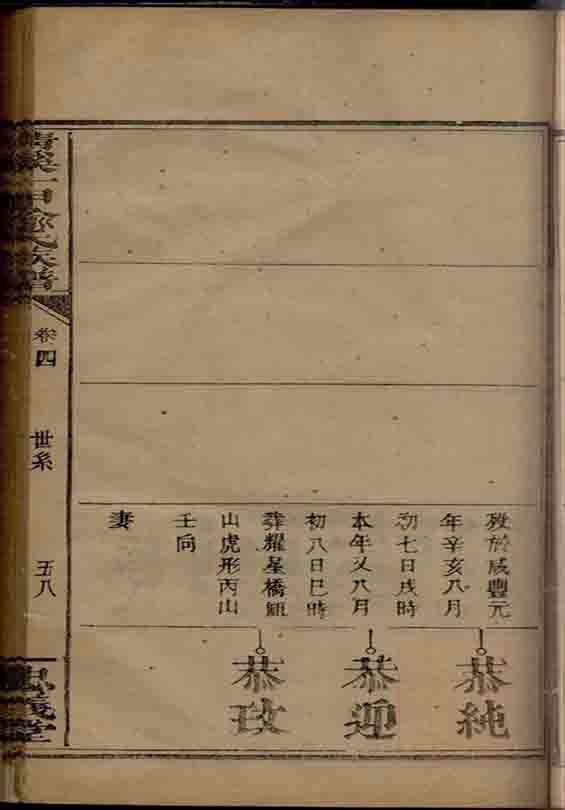 歿於咸豐元
年辛亥八月
初七日戌時
本年又八月
初八日巳時
葬耀星橋
山虎形丙山
壬向
妻
恭純
恭迎
恭政
氏族譜
卷四
世系
五八
堂